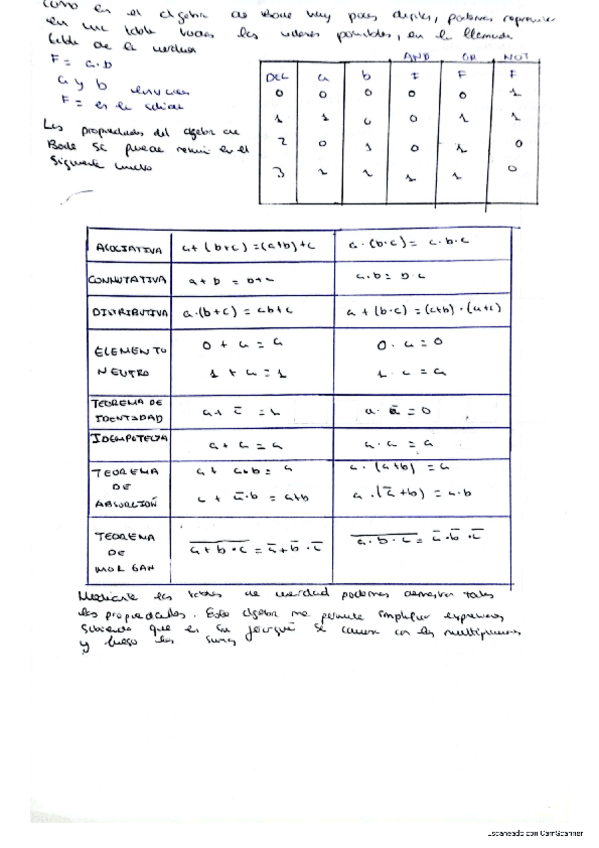 como en el algebra de Boole hay pocos , podemos representar
en una tabla todos los valores posibles, en la llamada
tabla de la verdad
F = a·b
a y b
F = es la salida
Las propiedades del algebra de
Boole se puede resumir en el
siguiente cuadro
AND OR NOT
DEC a b F F F
0 0 0 0 0 1
1 1 0 0 1 1
2 0 1 0 1 0
3 1 1 1 1 0
ASOCIATIVA a+(b+c)=(a+b)+c a·(b·c)= a·b·c
CONMUTATIVA a+b = b+a a·b = b·a
DISTRIBUTIVA a·(b+c)=ab+c a+(b·c)=(a+b)·(a+c)
ELEMENTO 0+a=a 0·a=0
NEUTRO 1+a=1 1·a=a
TEOREMA DE
IDENTIDAD a+a̅ =1 a·a̅=0
IDEMPOTECIA a+a=a a·a=a
TEOREMA a+a·b=a a·(a+b)=a
DE
ABSORCIÓN a+a̅·b=a+b a·(a̅+b)=a·b
TEOREMA
DE
MORGAN
Mediante las tablas de verdad podemos demostrar todas
las propiedades. Este algebra me permite simplificar expresiones
sabiendo que en su se con las
y luego las sumas
Escaneado con CamScanner